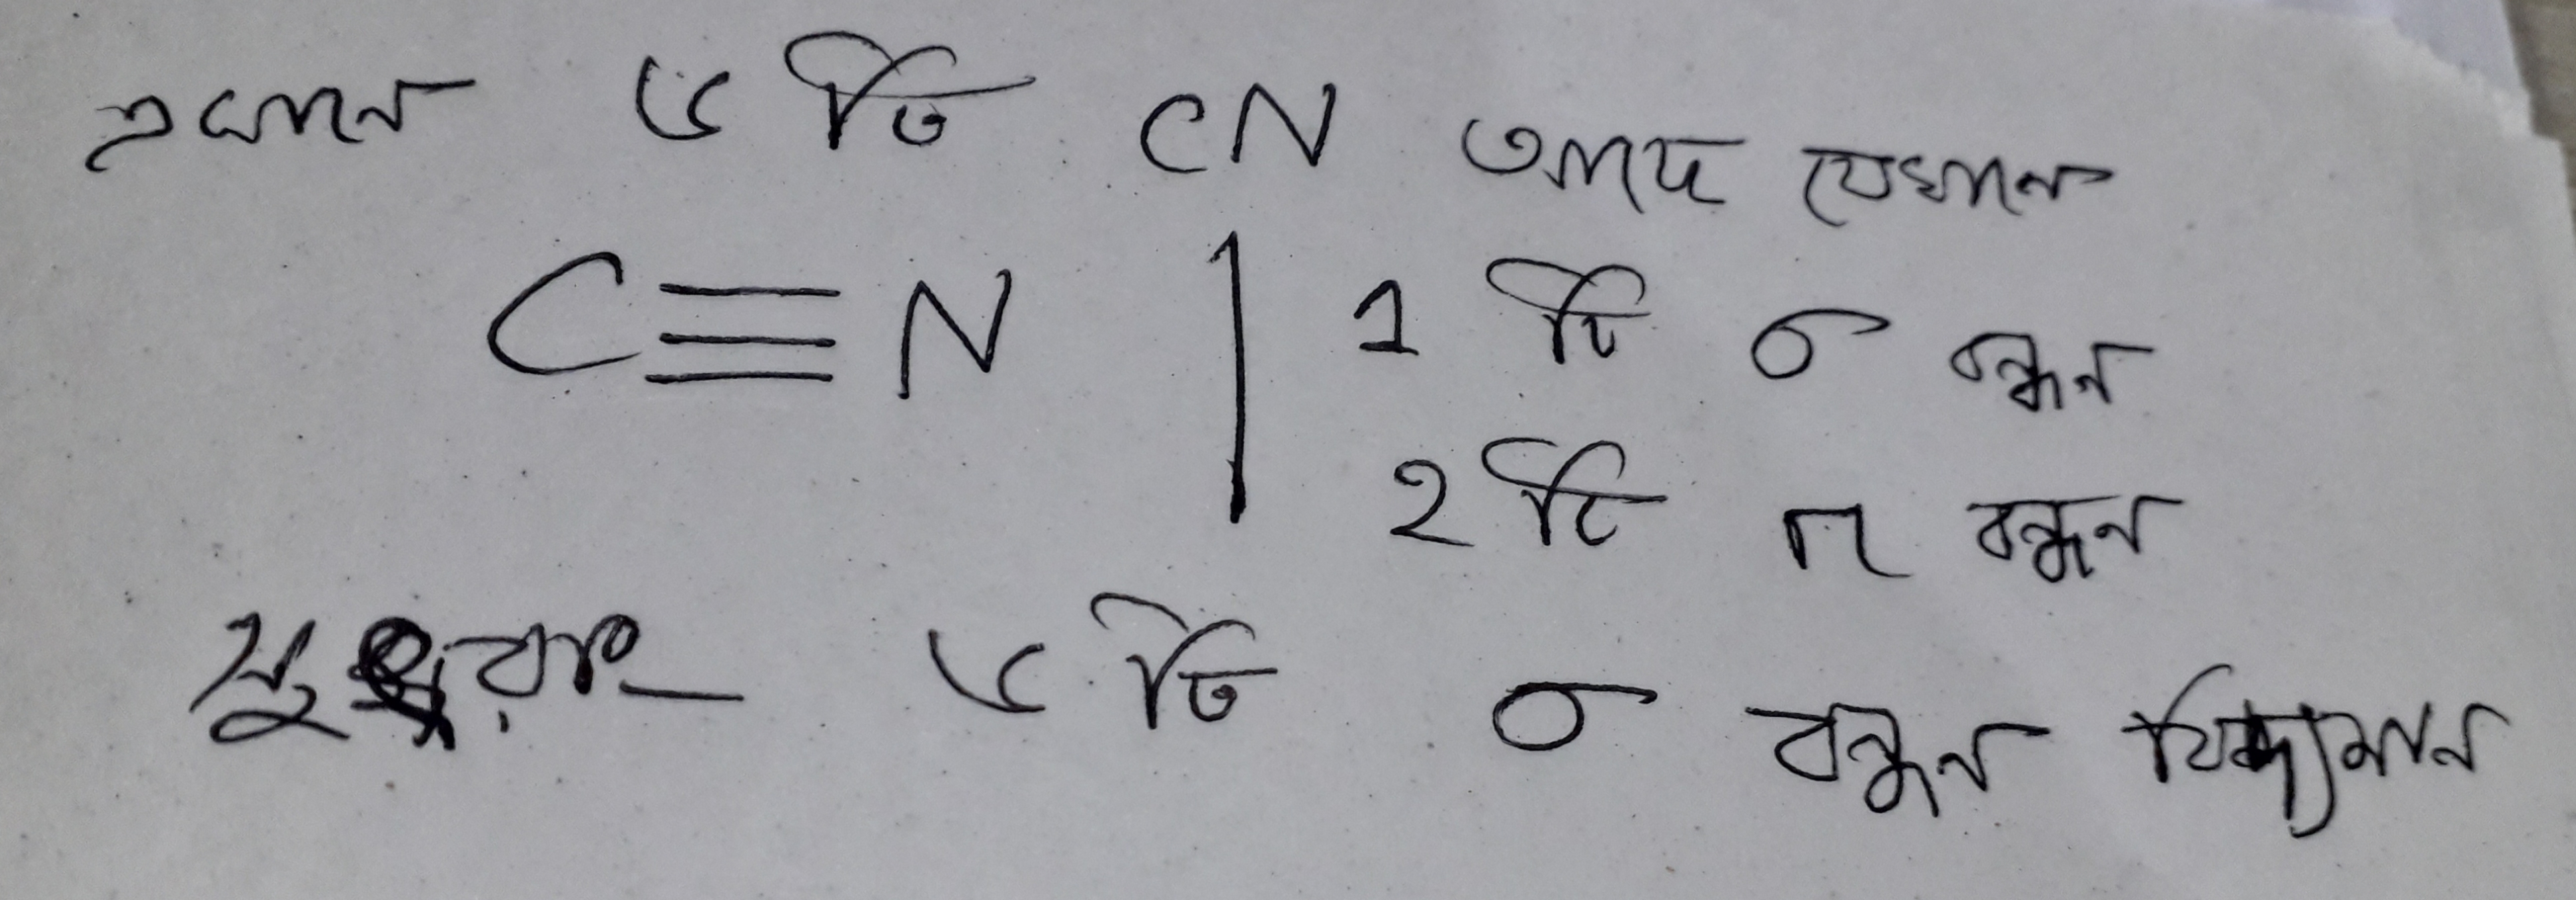 এখানে ৬ টি CN আছে যেখানে
C≡N | 1 টি σ বন্ধন
2 টি π বন্ধন
সুতরাং ৬ টি σ বন্ধন বিদ্যমান